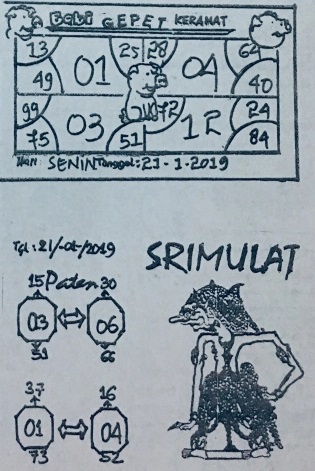 Babi GEPET KERAMAT
13 25 28 64
49 01 04 40
99 72 24
75 03 51 12 84
Hari: SENIN Tanggal: 21-1-2019
Tgl: 21/-01-/2019
SRIMULAT
15 Paten 30
03 06
51 66
37 16
01 04
73 52